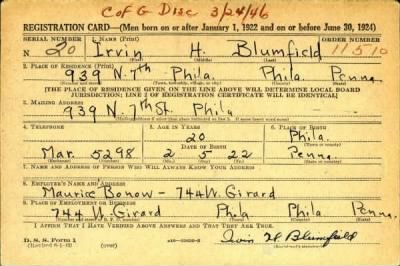 C of G Disc 3/24/46
REGISTRATION CARD—(Men born on or after January 1, 1922 and on or before June 30, 1924)
SERIAL NUMBER 1. NAME (Print) ORDER NUMBER
N 20 Irvin H. Blumfield 11510
(First) (Middle) (Last)
2. PLACE OF RESIDENCE (Print)
939 N. 7th Phila. Phila. Penna
[THE PLACE OF RESIDENCE GIVEN ON THE LINE ABOVE WILL DETERMINE LOCAL BOARD
JURISDICTION; LINE 2 OF REGISTRATION CERTIFICATE WILL BE IDENTICAL]
3. MAILING ADDRESS
939 N. 7th St. Phila
4. TELEPHONE 5. AGE IN YEARS 6. PLACE OF BIRTH
20 Phila.
DATE OF BIRTH (Town or county)
Mar. 5298 2 5 22 Penna.
(Exchange) (Number) (Mo.) (Day) (Yr.) (State or country)
7. NAME AND ADDRESS OF PERSON WHO WILL ALWAYS KNOW YOUR ADDRESS
8. EMPLOYER'S NAME AND ADDRESS
Maurice Bonow - 744 W. Girard
9. PLACE OF EMPLOYMENT OR BUSINESS
744 W. Girard Phila Phila Penna.
I AFFIRM THAT I HAVE VERIFIED ABOVE ANSWERS AND THAT THEY ARE TRUE.
D. S. S. Form 1 Irvin H Blumfield